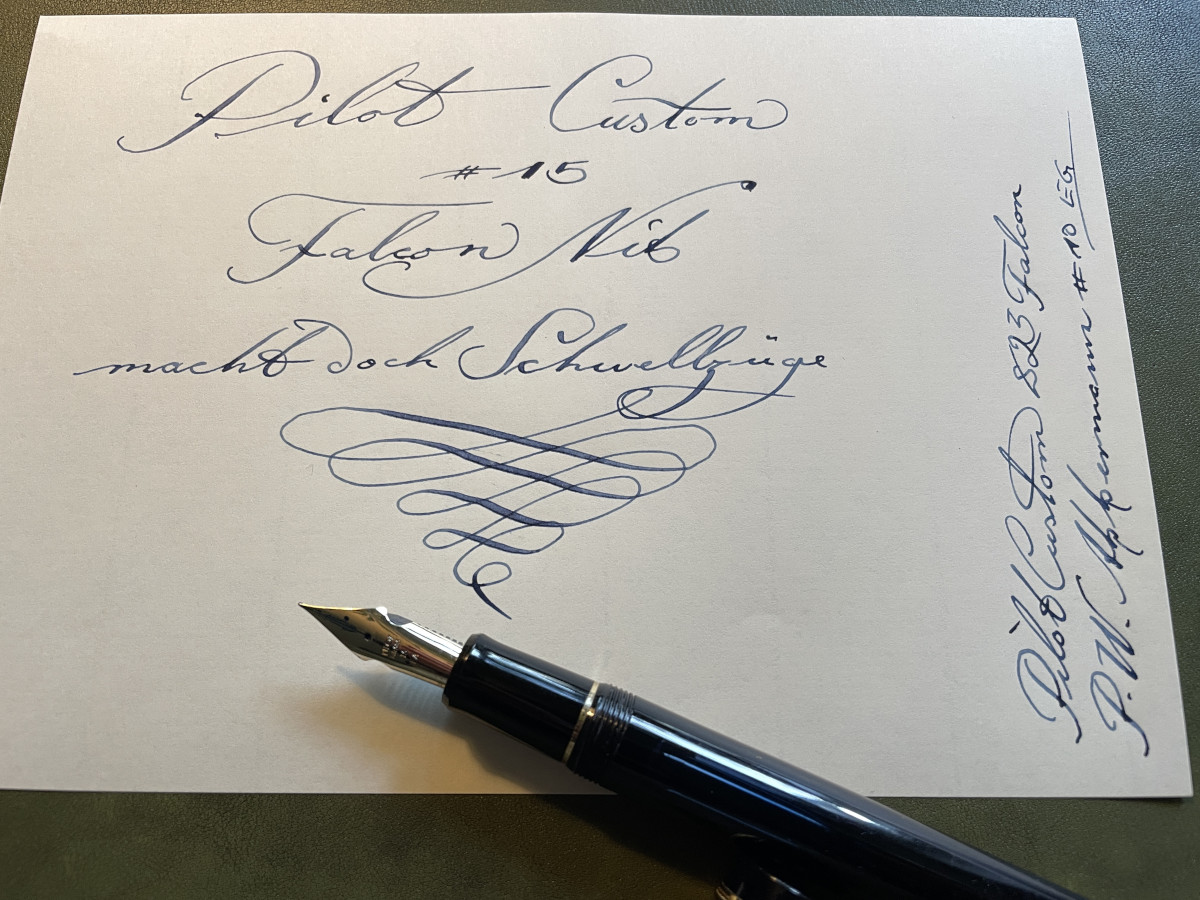 Pilot Custom
#15
Falcon Nib
macht doch Schwellzüge
Pilot Custom 823 Falcon
P.W. Akkermann #10 EG